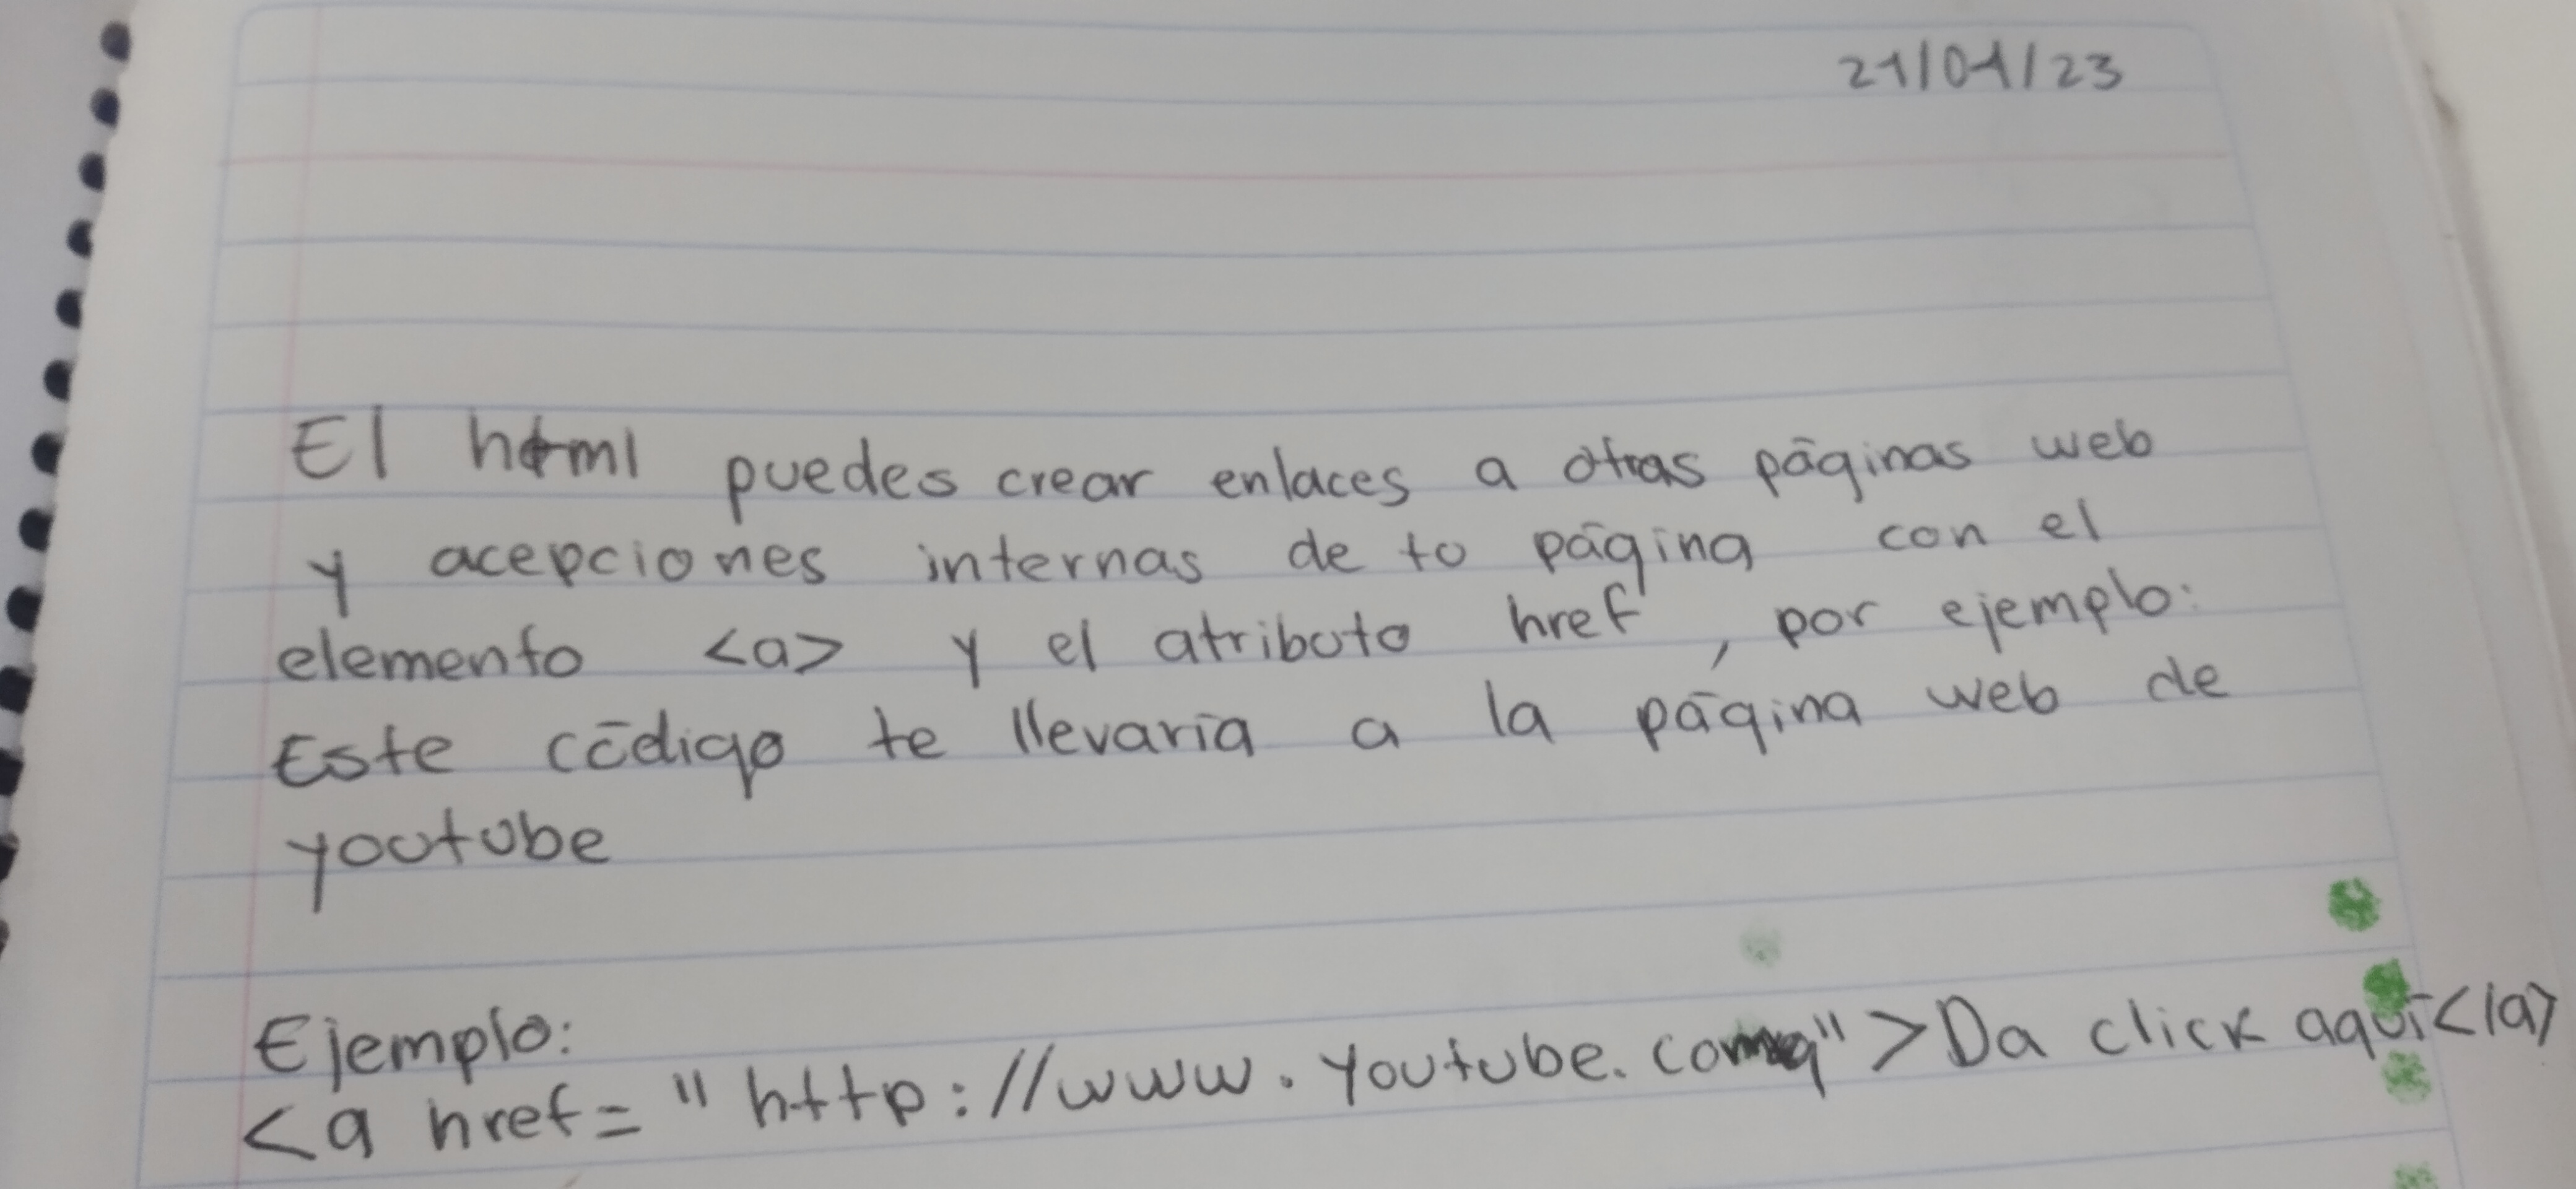 21/04/23
El html puedes crear enlaces a otras páginas web
y acepciones internas de to página con el
elemento <a> y el atributo href, por ejemplo:
Este código te llevaría a la página web de
youtube
Ejemplo:
<a href= "http://www.youtube.com" >Da click aquí</a>